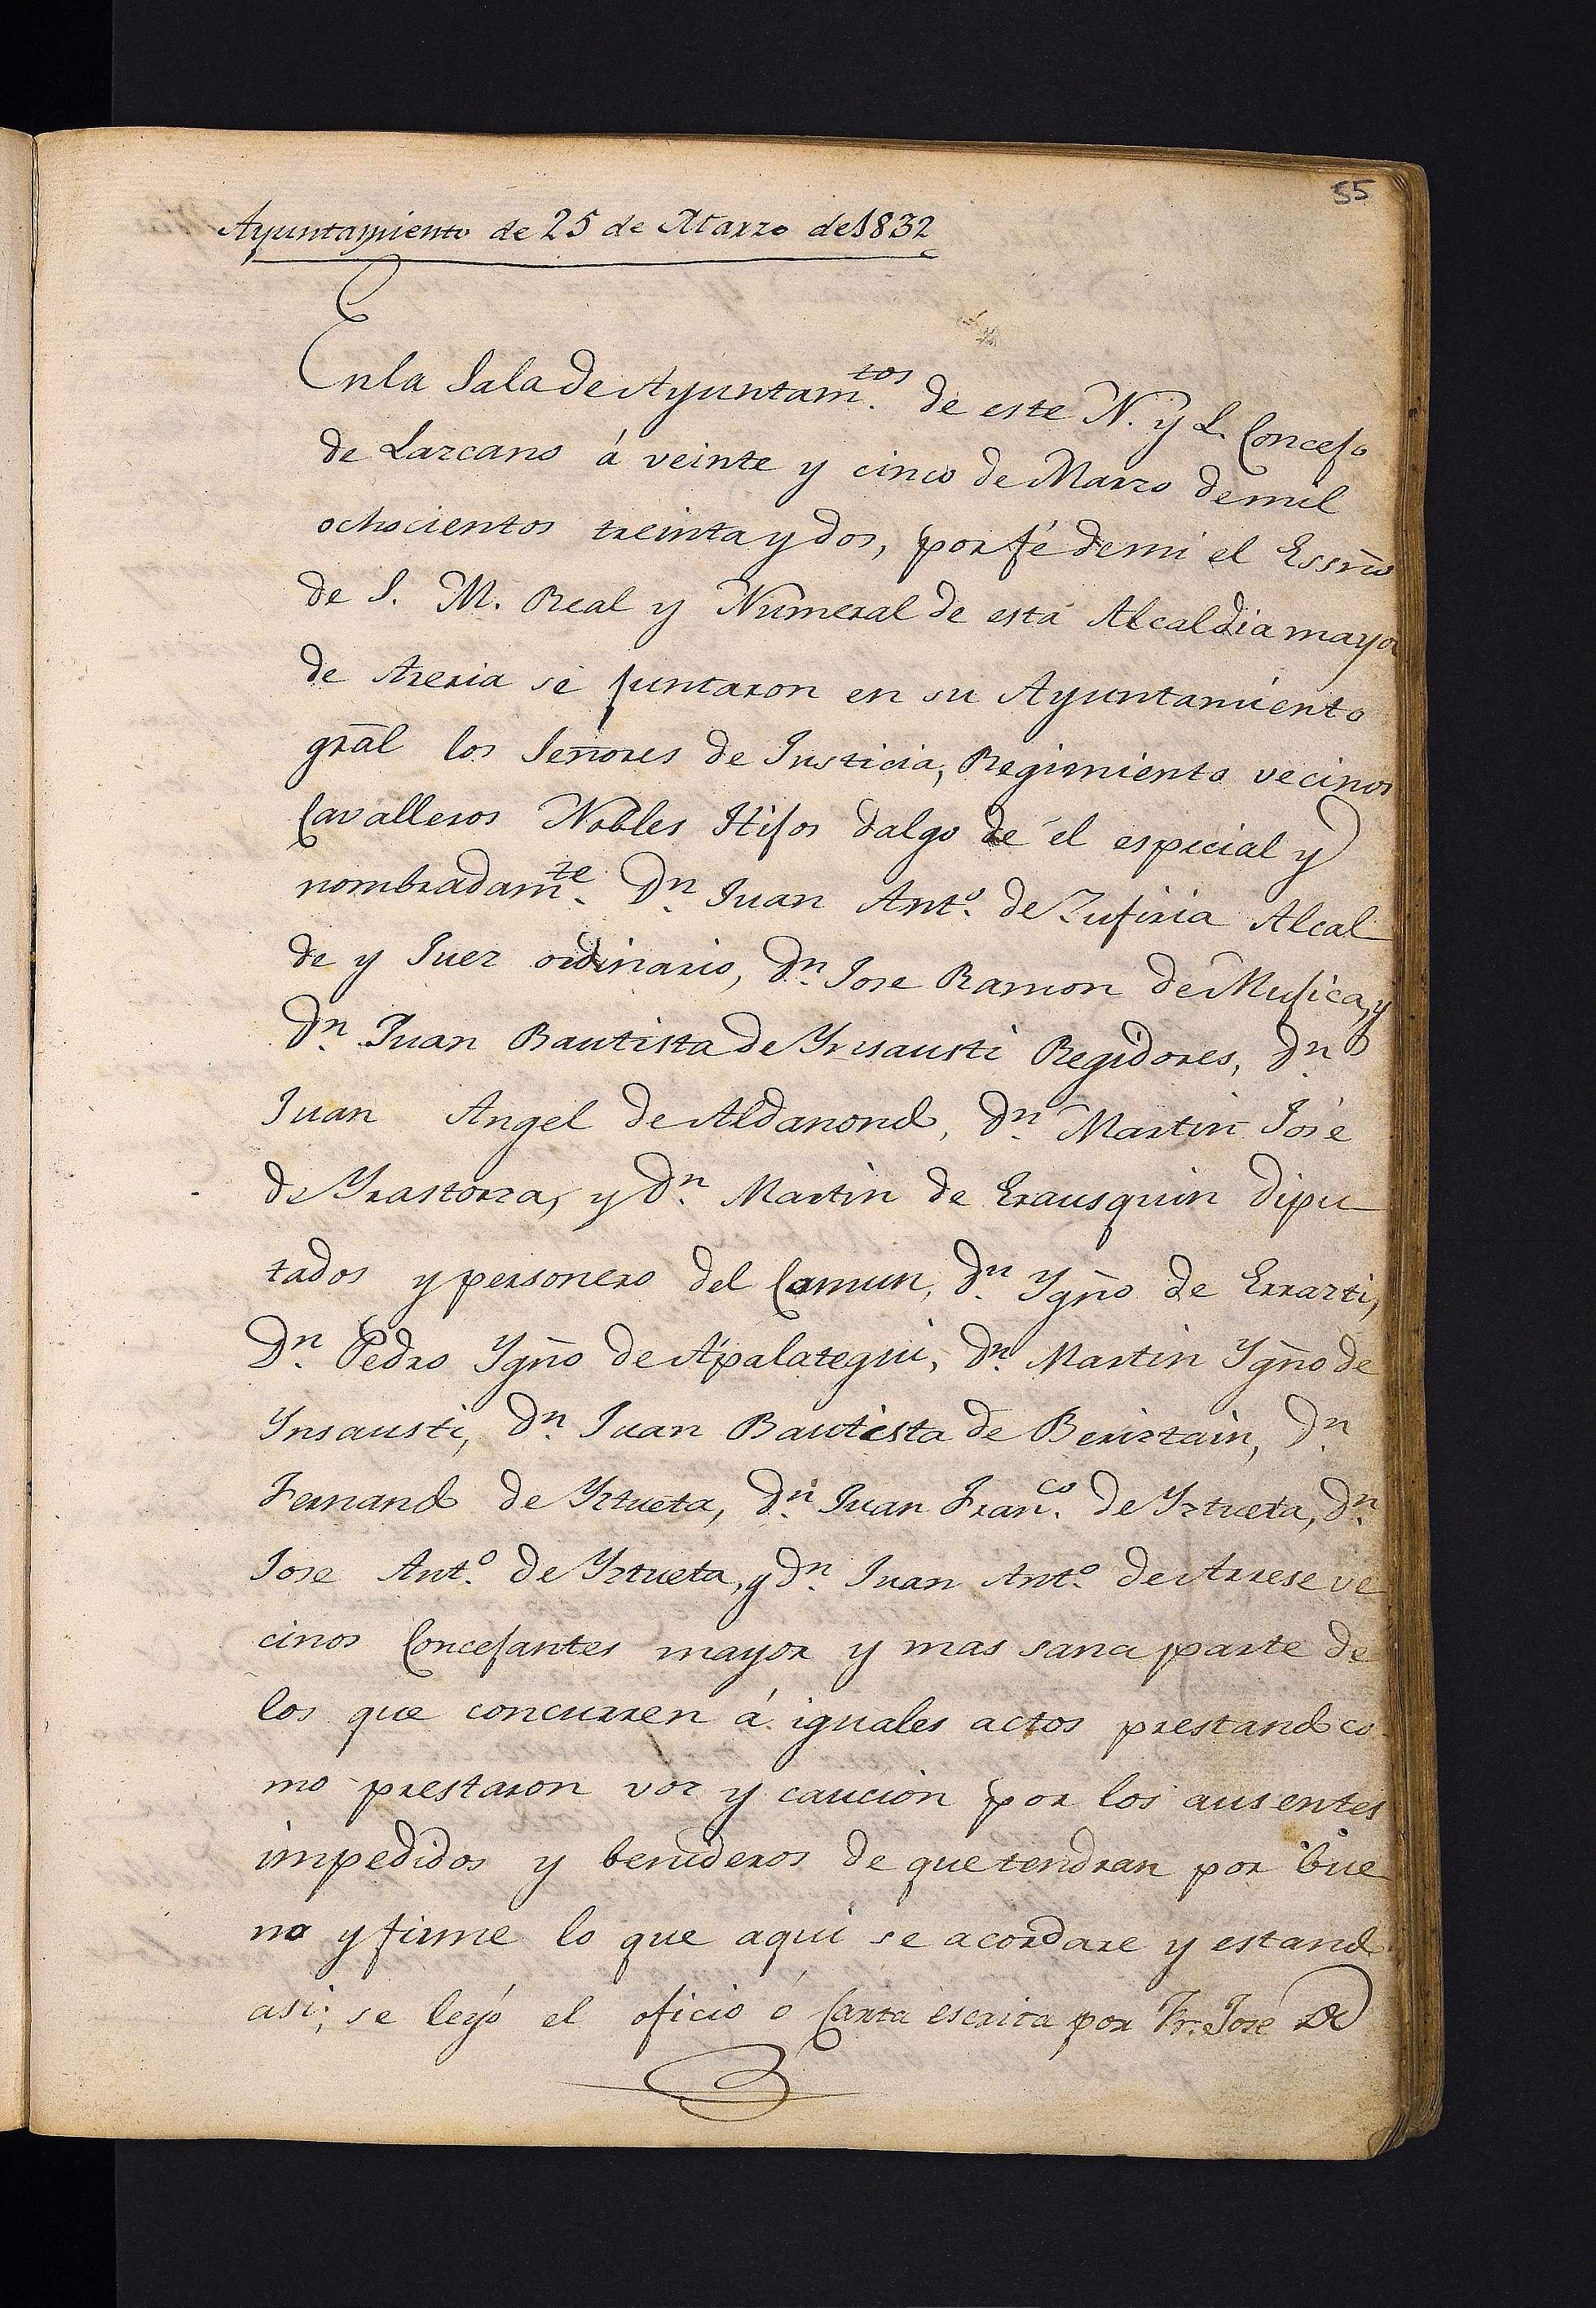 55
Ayuntamiento de 25 de Marzo de 1832
En la Sala de Ayuntam.tos de este N. y L. Concejo
de Lazcano á veinte y cinco de Marzo de mil
ochocientos treinta y dos, por fé de mi el Essno
de S. M. Real y Numeral de esta Alcaldia mayor
de Areria se juntaron en su Ayuntamiento
gral los Señores de Justicia, Regimiento vecinos
Cavalleros Nobles Hijos dalgo de él especial y
nombradam.te Dn. Juan Ant.o de Zufiria Alcal
de y Juez ordinario, Dn. Jose Ramon de Mujica, y
Dn. Juan Bautista de Ynsausti Regidores, Dn.
Juan Angel de Aldanondo, Dn. Martin José
de Yrastorza, y Dn. Martin de Erausquin Dipu
tados y personero del Comun, Dn. Ygno de Errazti,
Dn. Pedro Ygno de Apalategui, Dn. Martin Ygno de
Ynsausti, Dn. Juan Bautista de Beriztain, Dn.
Fernando de Yztueta, Dn. Juan Fran.co de Yztueta, Dn.
Jose Ant.o de Yztueta, y Dn. Juan Ant.o de Arrese ve
cinos Concejantes mayor y mas sana parte de
los que concurren á iguales actos prestando co
mo prestaron voz y caución por los ausentes
impedidos y benideros de que tendran por bue
no y firme lo que aqui se acordare y estando
asi; se leyó el oficio ó Carta escrita por Fr. José de